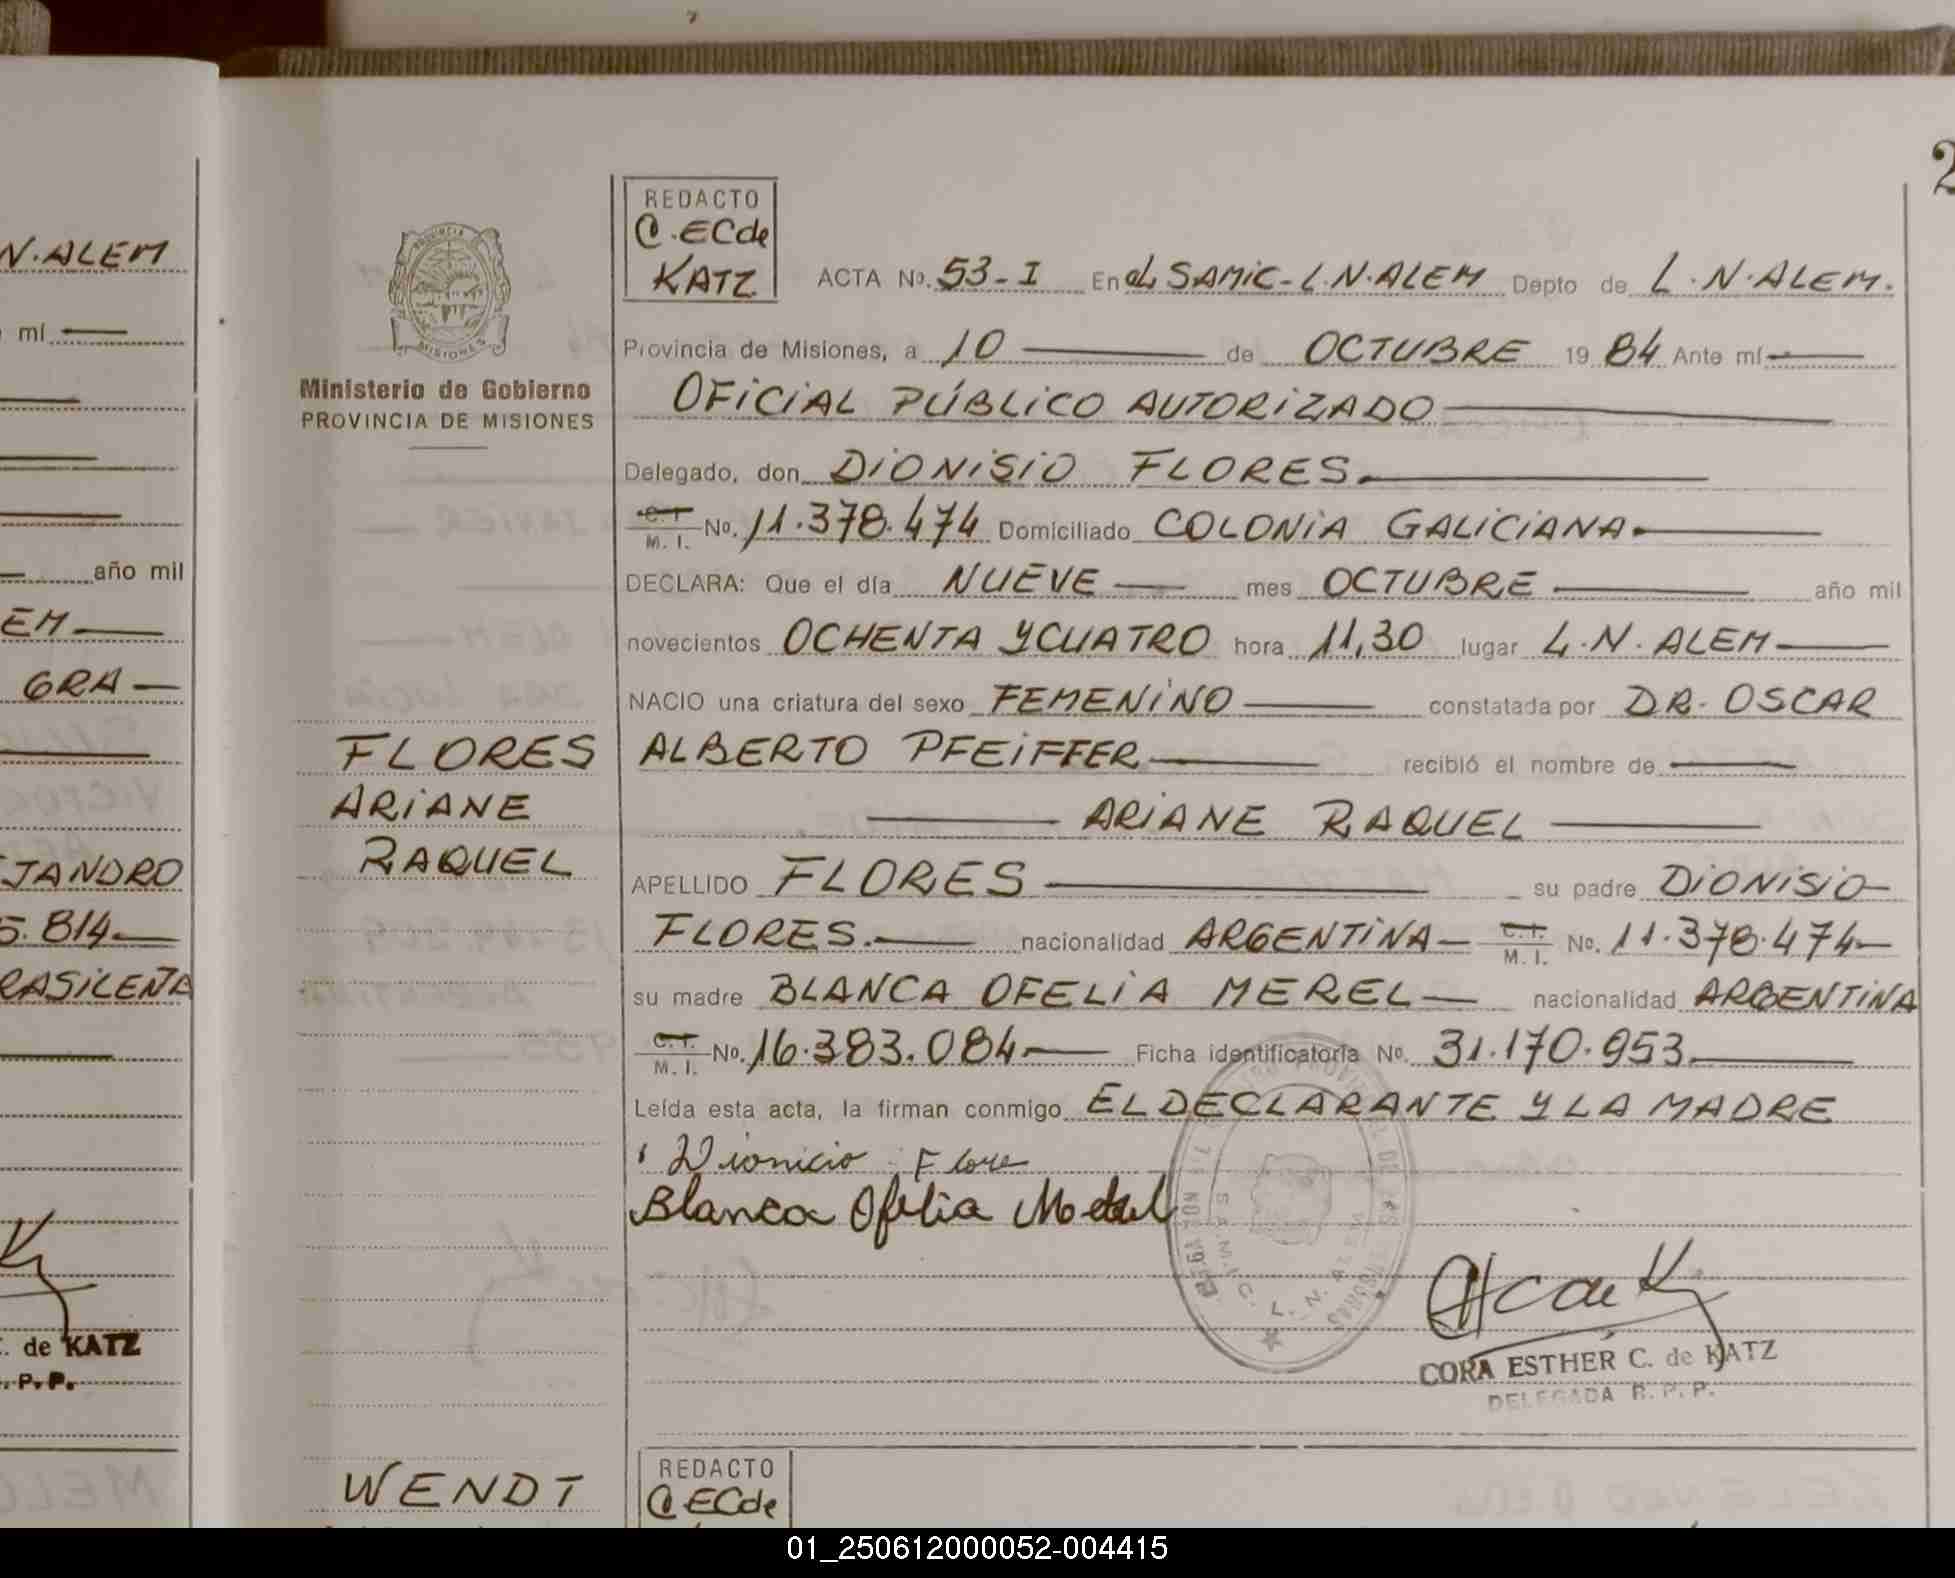 2
N.ALEM
mí
año mil
EM
GRA
JANDRO
5.814
RASILEÑA
. de KATZ
. P. P.
PROVINCIA DE
MISIONES
Ministerio de Gobierno
PROVINCIA DE MISIONES
FLORES
ARIANE
RAQUEL
REDACTO
C.ECde
KATZ
ACTA No. 53-I En el SAMIC-L.N.ALEM Depto de L.N.ALEM.
Provincia de Misiones, a 10 de OCTUBRE 19 84 Ante mí
OFICIAL PÚBLICO AUTORIZADO
Delegado, don DIONISIO FLORES.
C.I. M.I. No. 11.378.474 Domiciliado COLONIA GALICIANA
DECLARA: Que el día NUEVE mes OCTUBRE año mil
novecientos OCHENTA Y CUATRO hora 11,30 lugar L.N.ALEM
NACIO una criatura del sexo FEMENINO constatada por DR. OSCAR
ALBERTO PFEIFFER recibió el nombre de
ARIANE RAQUEL
APELLIDO FLORES su padre DIONISIO
FLORES. nacionalidad ARGENTINA C.I. M.I. No. 11.378.474
su madre BLANCA OFELIA MEREL nacionalidad ARGENTINA
C.I. M.I. No. 16.383.084 Ficha identificatoria No. 31.170.953
Leída esta acta, la firman conmigo EL DECLARANTE Y LA MADRE
Dionicio Flore
Blanca Ofelia
S.A.M.I.C. L.N. ALEM
CORA ESTHER C. de KATZ
DELEGADA R. P. P.
WENDT
REDACTO
C.ECde
01_250612000052-004415